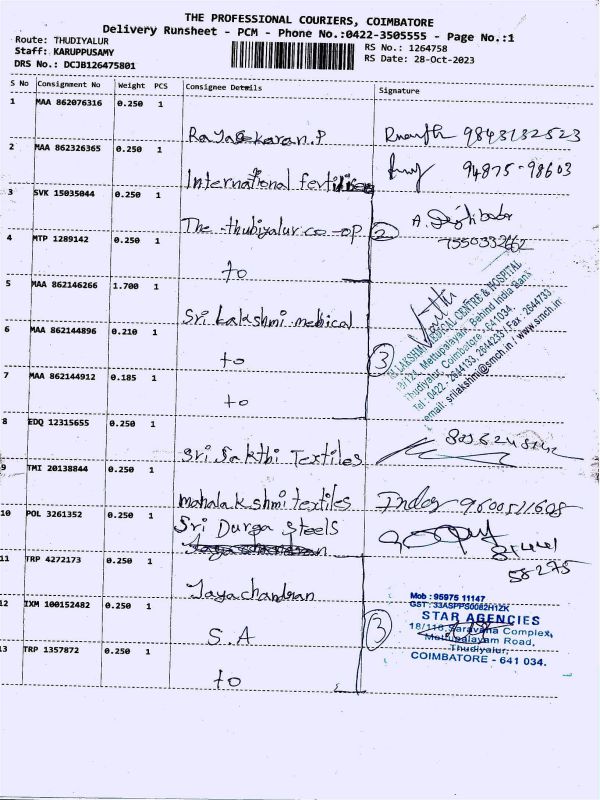 THE PROFESSIONAL COURIERS, COIMBATORE
Delivery Runsheet - PCM - Phone No.:0422-3505555 - Page No.:1
Route: THUDIYALUR
Staff: KARUPPUSAMY
DRS No.: DCJB126475801
RS No.: 1264758
RS Date: 28-Oct-2023
S No Consignment No Weight PCS Consignee Details Signature
1 MAA 862076316 0.250 1
Rajasekaran.P 9843132523
2 MAA 862326365 0.250 1
International 94875-98603
3 SVK 15035044 0.250 1
The thubiyalur co-op 2 A.
7550332662
4 MTP 1289142 0.250 1
to
5 MAA 862146266 1.700 1
Sri Lakshmi medical
6 MAA 862144896 0.210 1
to 3
7 MAA 862144912 0.185 1
to
SRI LAKSHMI MEDICAL CENTRE & HOSPITAL
18/121, Mettupalayam, Behind India Bank
Thudiyalur, Coimbatore - 641034.
Tel : 0422 - 2644133, 2644233 / Fax : 2644733
email: srilakshmi@smch.in / www.smch.in
8 EDQ 12315655 0.250 1
Sri Sakthi Textiles
9 TMI 20138844 0.250 1
mahalakshmi textiles 9600521608
10 POL 3261352 0.250 1
Sri Durga Steels
58275
11 TRP 4272173 0.250 1
Jayachandran
12 IXM 100152482 0.250 1
S.A 3
13 TRP 1357872 0.250 1
to
Mob : 95975 11147
GST : 33ASPPS0082H1ZK
STAR AGENCIES
18/116, Saravana Complex,
Mettupalayam Road,
Thudiyalur,
COIMBATORE - 641 034.